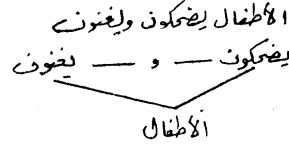 الأطفال يضحكون ويغنون
يضحكون — و — يغنون
الأطفال